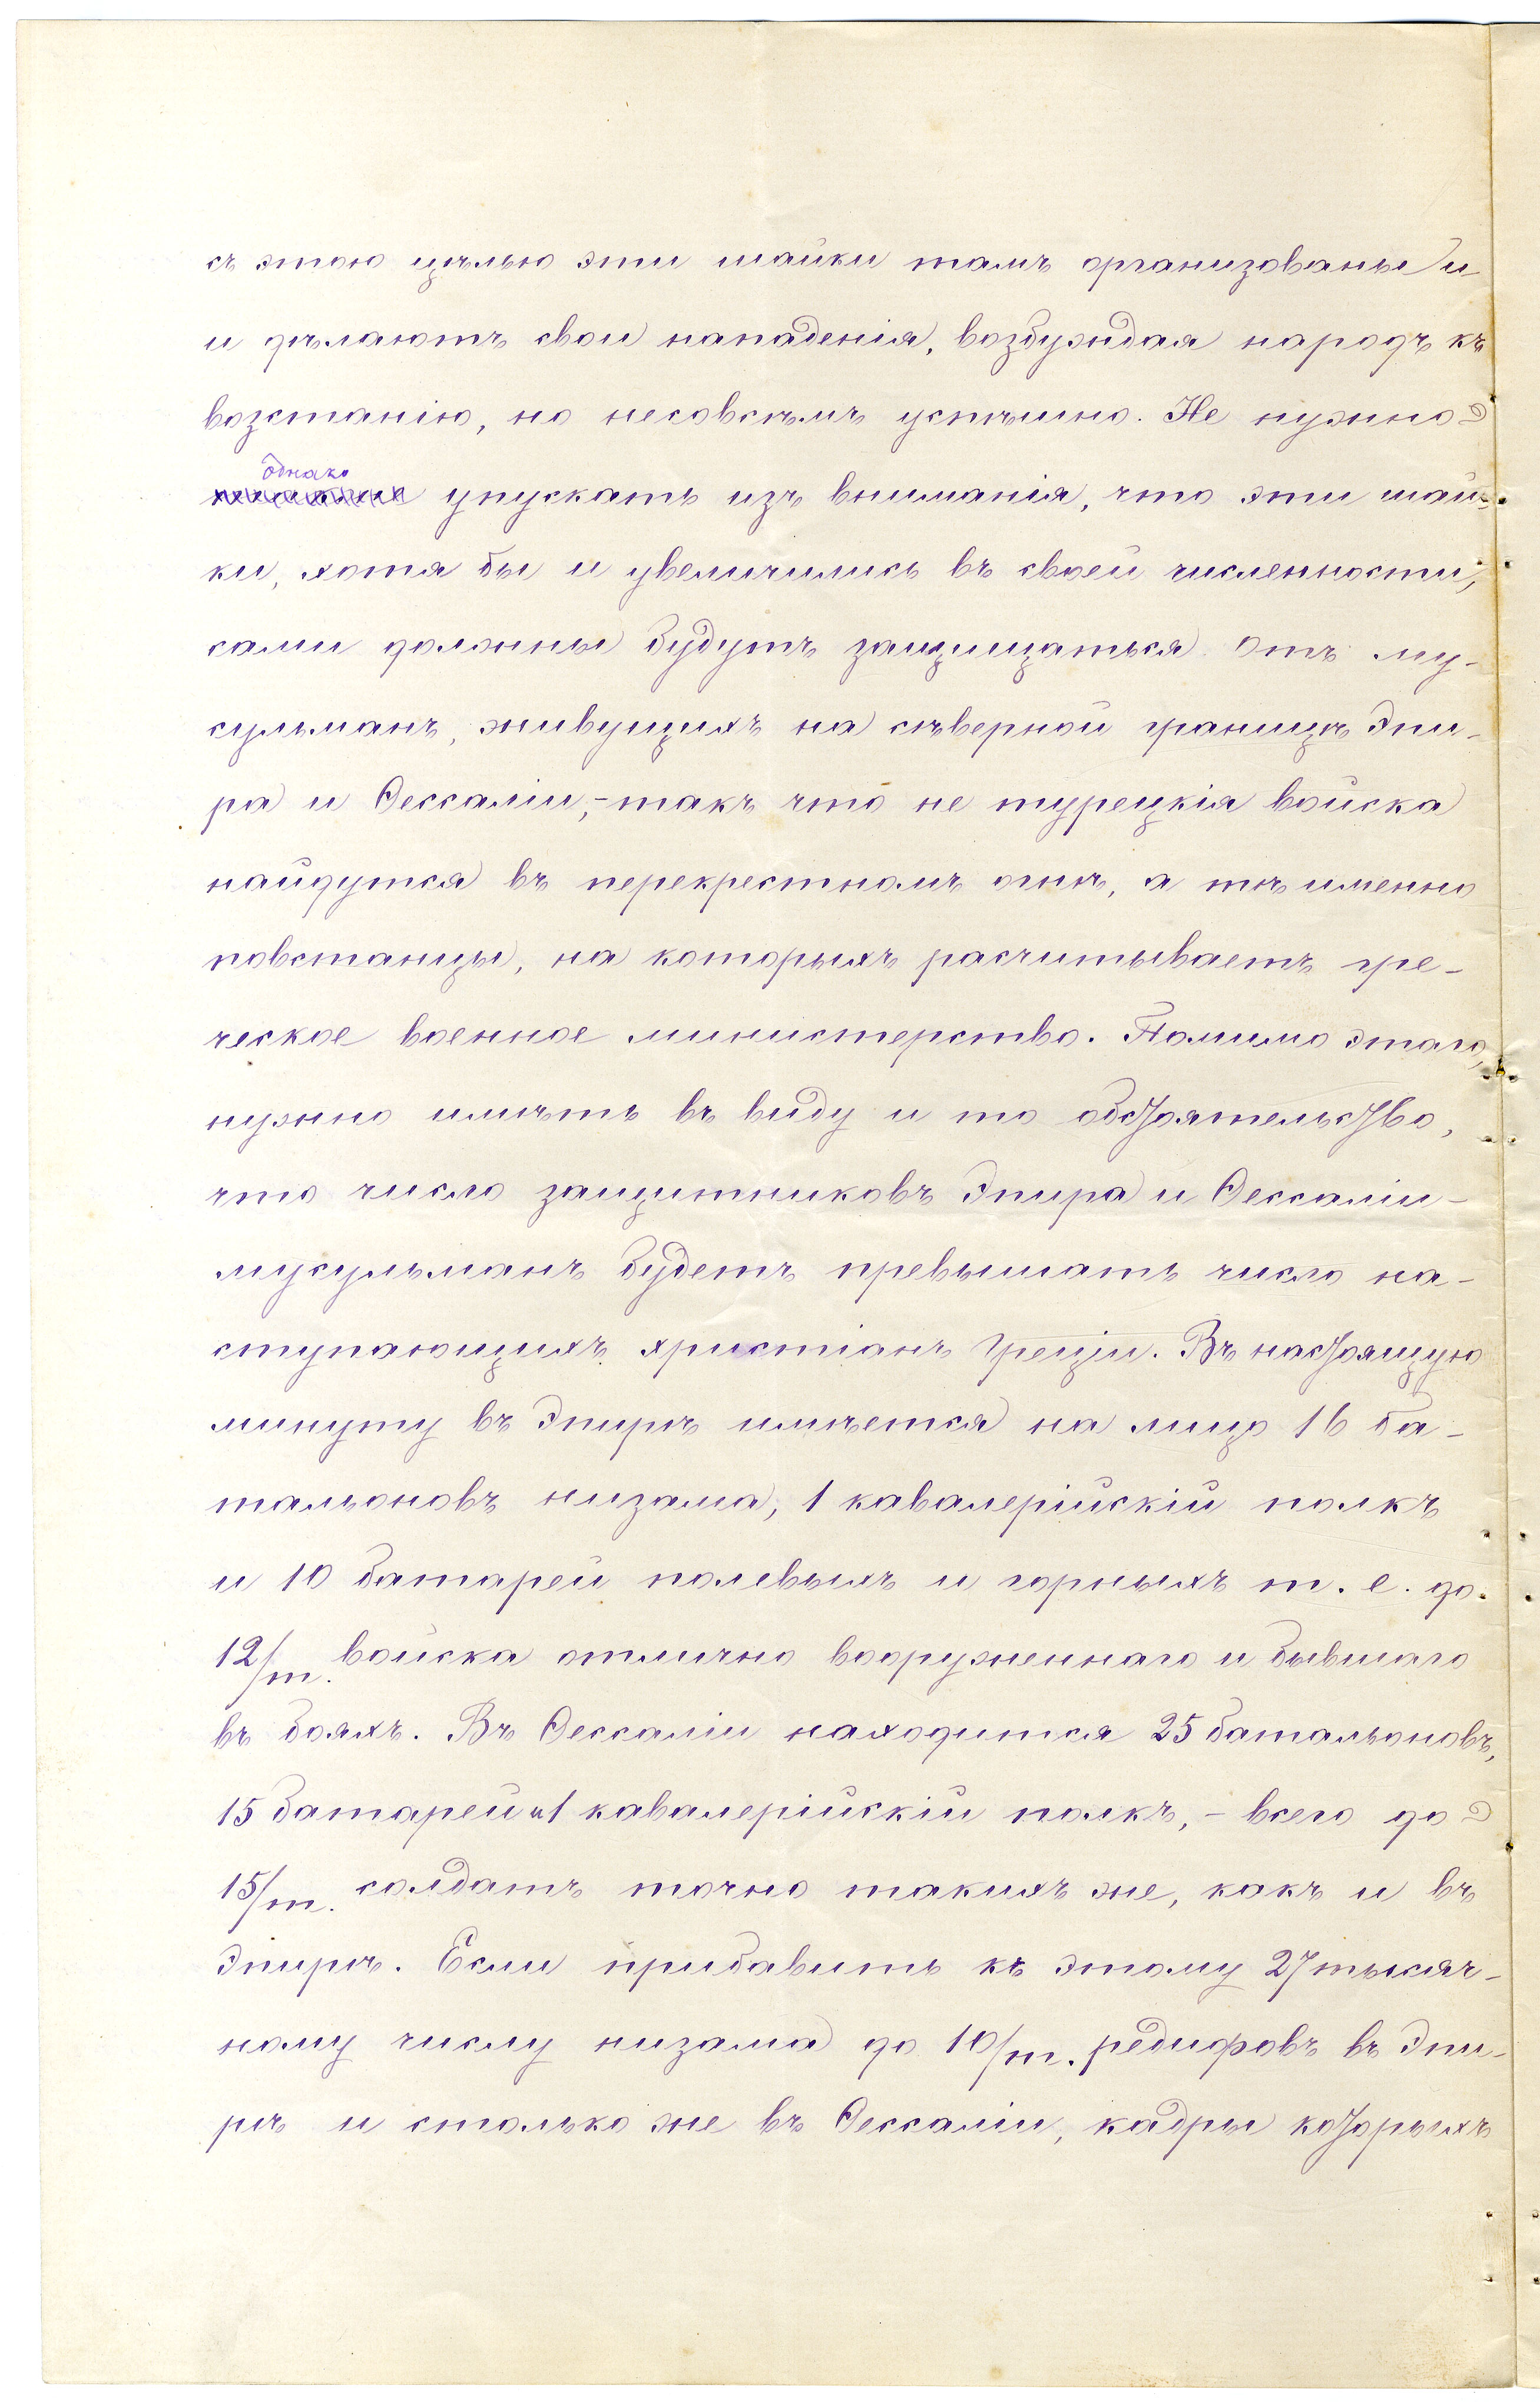 съ этою цѣлью эти шайки тамъ организованы и
и дѣлаютъ свои нападенія, возбуждая народъ къ
возстанію, но несовсѣмъ успѣшно. Не нужно
однако
упускать изъ вниманія, что эти шай-
ки, хотя бы и увеличились въ своей численности,
сами должны будутъ защищаться отъ му-
сульманъ, живущихъ на сѣверной границѣ Эпи-
ра и Ѳессаліи,- такъ что не турецкія войска
найдутся въ перекрестномъ огнѣ, а тѣ именно
повстанцы, на которыхъ расчитываетъ гре-
ческое военное министерство. Помимо этого,
нужно имѣть въ виду и то обстоятельство,
что число защитниковъ Эпира и Ѳессаліи -
мусульманъ будетъ превышать число на-
ступающихъ христіанъ Греціи. Въ настоящую
минуту въ Эпирѣ имѣется на лицо 16 ба-
тальоновъ низама, 1 кавалерійскій полкъ
и 10 батарей полевыхъ и горныхъ т. е. до
12/т. войска отлично вооруженнаго и бывшаго
въ бояхъ. Въ Ѳессаліи находится 25 батальоновъ,
15 батарей и 1 кавалерійскій полкъ, - всего до
15/т. солдатъ точно такихъ же, какъ и въ
Эпирѣ. Если прибавить къ этому 27 тысяч-
ному числу низама до 10/т. редифовъ въ Эпи-
рѣ и столько же въ Ѳессаліи, кадры которыхъ